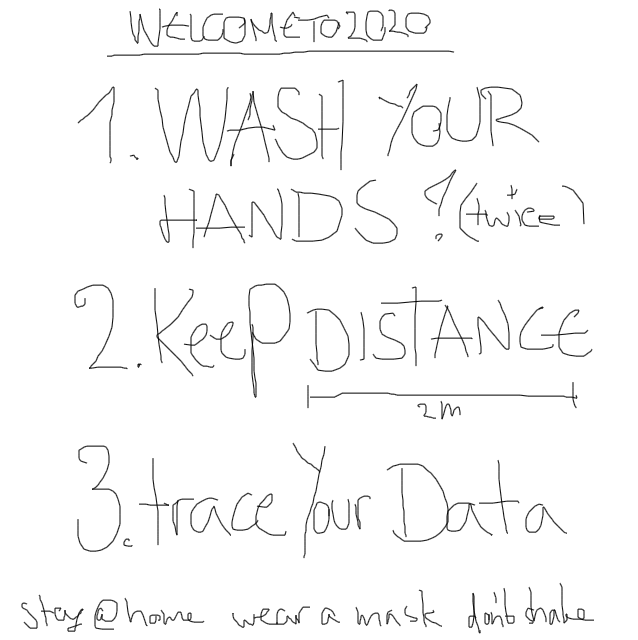 WELCOMETO2020
1. WASH YOUR
HANDS! (twice)
2. Keep DISTANCE
2m
3. trace Your Data
stay @home wear a mask don't shake